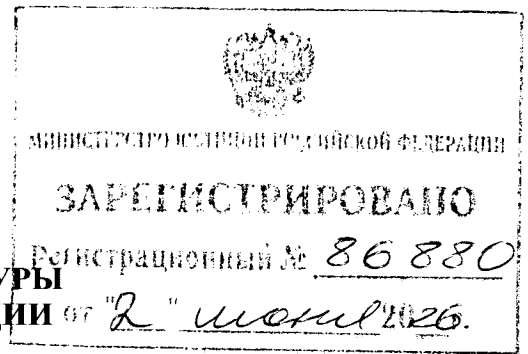 МИНИСТЕРСТВО ЮСТИЦИИ РОССИЙСКОЙ ФЕДЕРАЦИИ
ЗАРЕГИСТРИРОВАНО
Регистрационный № 86880
УРЫ
ИИ от "2" июня 2026.